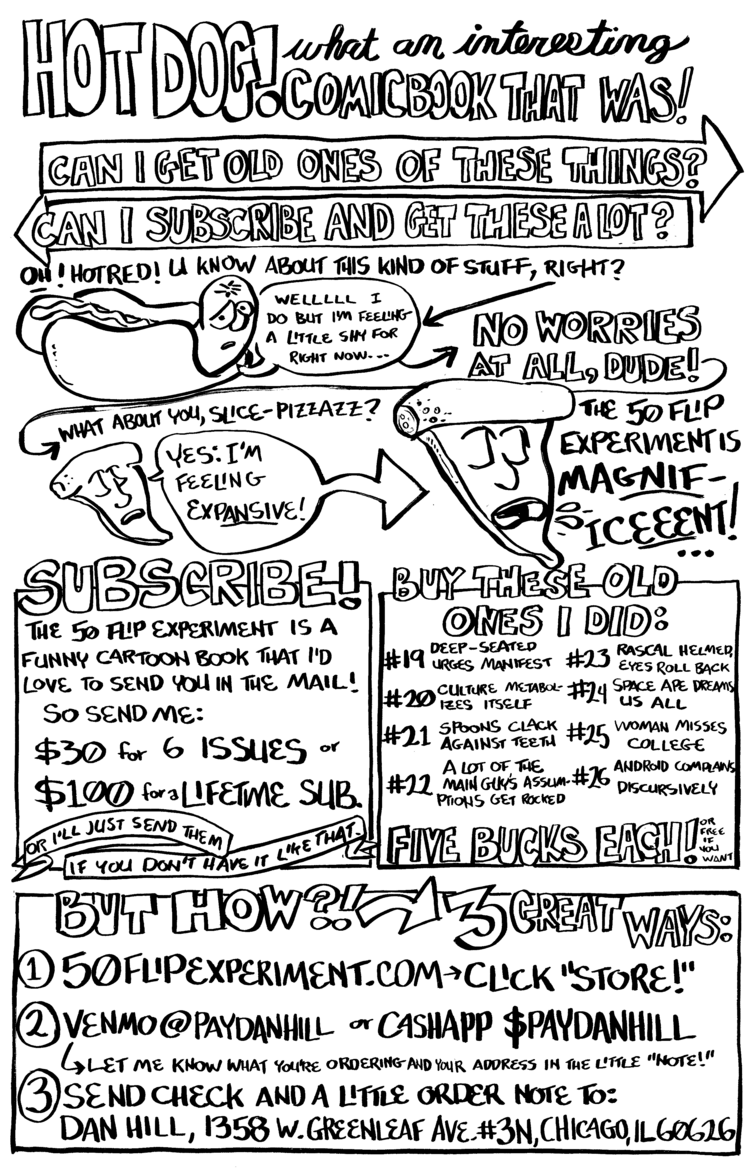 HOT DOG! what an interesting
COMICBOOK THAT WAS!
CAN I GET OLD ONES OF THESE THINGS?
CAN I SUBSCRIBE AND GET THESE A LOT?
OH! HOTRED! U KNOW ABOUT THIS KIND OF STUFF, RIGHT?
WELLLLL I
DO BUT I'M FEELING
A LITTLE SHY FOR
RIGHT NOW...
NO WORRIES
AT ALL, DUDE!
WHAT ABOUT YOU, SLICE-PIZZAZZ?
YES: I'M
FEELING
EXPANSIVE!
THE 50 FLIP
EXPERIMENT IS
MAGNIF-
ICEEENT!
...
SUBSCRIBE!
THE 50 FLIP EXPERIMENT IS A
FUNNY CARTOON BOOK THAT I'D
LOVE TO SEND YOU IN THE MAIL!
SO SEND ME:
$30 for 6 ISSUES or
$100 for a LIFETIME SUB.
OR I'LL JUST SEND THEM
IF YOU DON'T HAVE IT LIKE THAT.
BUY THESE OLD
ONES I DID:
#19 DEEP-SEATED
URGES MANIFEST
#20 CULTURE METABOL-
IZES ITSELF
#21 SPOONS CLACK
AGAINST TEETH
#22 A LOT OF THE
MAIN GUK'S ASSUM-
PTIONS GET ROCKED
#23 RASCAL HELMED,
EYES ROLL BACK
#24 SPACE APE DREAMS
US ALL
#25 WOMAN MISSES
COLLEGE
#26 ANDROID COMPLAINS
DISCURSIVELY
FIVE BUCKS EACH!
OR
FREE
IF
YOU
WANT
BUT HOW?! 3 GREAT WAYS:
1 50FLIPEXPERIMENT.COM→CLICK "STORE!"
2 VENMO @PAYDANHILL or CASHAPP $PAYDANHILL
LET ME KNOW WHAT YOU'RE ORDERING AND YOUR ADDRESS IN THE LITTLE "NOTE!"
3 SEND CHECK AND A LITTLE ORDER NOTE TO:
DAN HILL, 1358 W. GREENLEAF AVE. #3N, CHICAGO, IL 60626